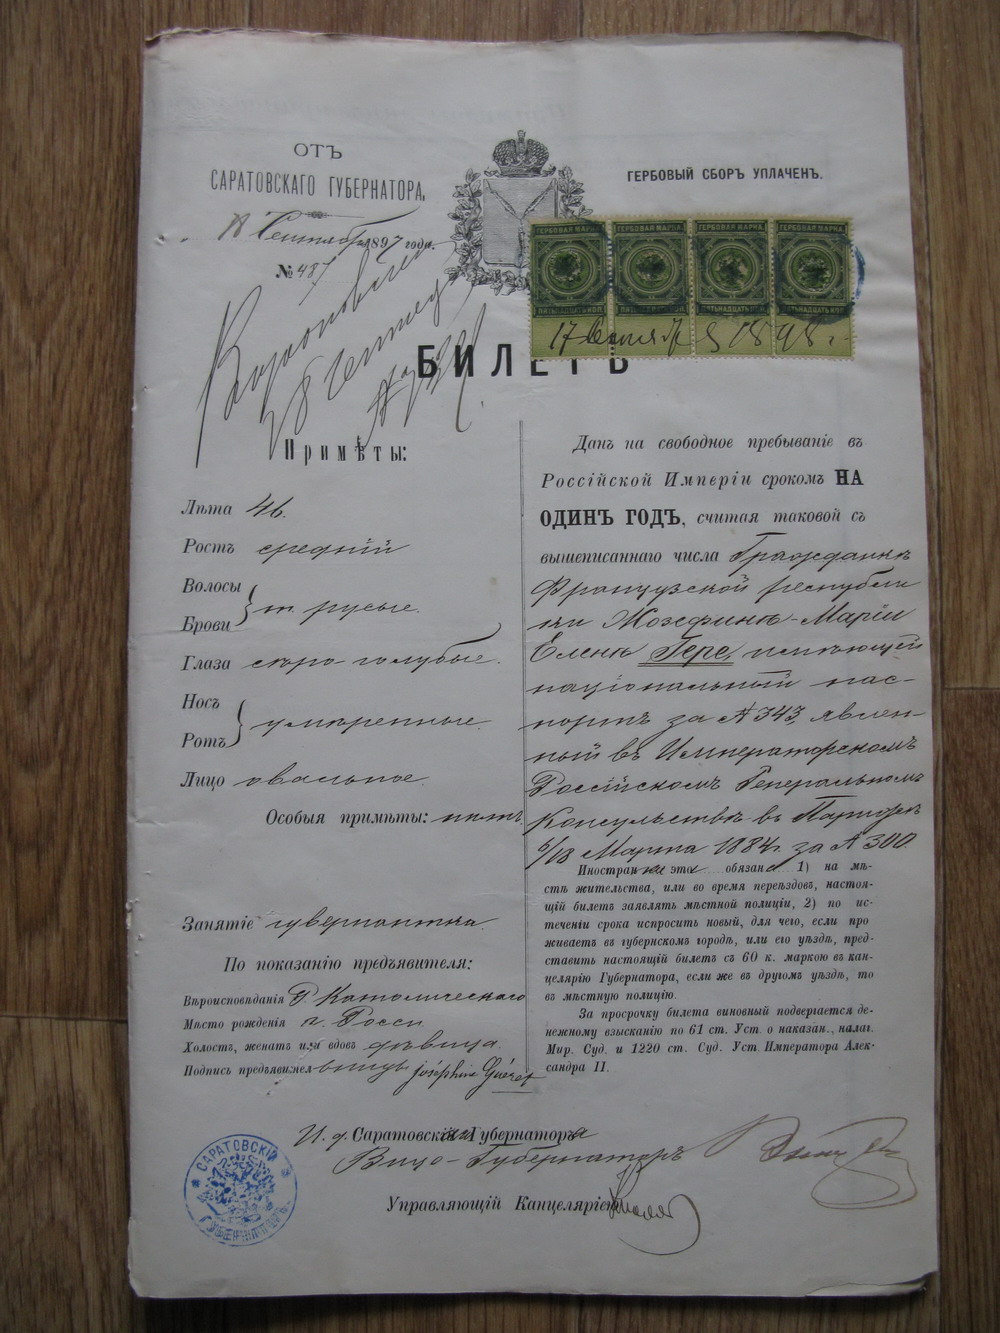 ОТЪ
САРАТОВСКАГО ГУБЕРНАТОРА,
18 Сентября 1897 года.
№ 487
ГЕРБОВЫЙ СБОРЪ УПЛАЧЕНЪ.
ГЕРБОВАЯ МАРКА. ГЕРБОВАЯ МАРКА. ГЕРБОВАЯ МАРКА. ГЕРБОВАЯ МАРКА.
ПЯТЬНАДЦАТЬ КОП. ПЯТЬНАДЦАТЬ КОП. ПЯТЬНАДЦАТЬ КОП. ПЯТЬНАДЦАТЬ КОП.
17 1898 г.
БИЛЕТЪ
Примѣты:
Лѣта 46.
Ростъ средній
Волосы
Брови } т. русые.
Глаза сѣро-голубые.
Носъ
Ротъ } умѣренные
Лицо овальное.
Особыя примѣты: нѣтъ
Занятіе гувернантка.
По показанію предъявителя:
Вѣроисповѣданія Р. Католическаго
Мѣсто рожденія г. Росси.
Холостъ, женатъ или вдовъ дѣвица.
Подпись предъявител-ьницы joséphine Guéret
Данъ на свободное пребываніе въ
Россійской Имперіи срокомъ НА
ОДИНЪ ГОДЪ, считая таковой съ
вышеписаннаго числа Гражданкѣ
Французской республи
ки Жозефинѣ-Маріи
Еленѣ Гере, имѣющей
національный пас-
портъ за № 343, явлен-
ный въ Императорскомъ
Россійскомъ Генеральномъ
Консульствѣ въ Парижѣ
6/18 Марта 1884 г. за № 300.
Иностранка эта обязана 1) на мѣ-
стѣ жительства, или во время переѣздовъ, настоя-
щій билетъ заявлять мѣстной полиціи, 2) по ис-
теченіи срока испросить новый, для чего, если про
живаетъ въ губернскомъ городѣ, или его уѣздѣ, пред-
ставить настоящій билетъ съ 60 к. маркою въ кан-
целярію Губернатора, если же въ другомъ уѣздѣ, то
въ мѣстную полицію.
За просрочку билета виновный подвергается де-
нежному взысканію по 61 ст. Уст. о наказан., налаг.
Мир. Суд. и 1220 ст. Суд. Уст. Императора Алек-
сандра II.
И. д. Саратовскаго Губернатора
Вице-Губернаторъ
Управляющій Канцеляріею
САРАТОВСКІЙ
ГУБЕРНАТОРЪ